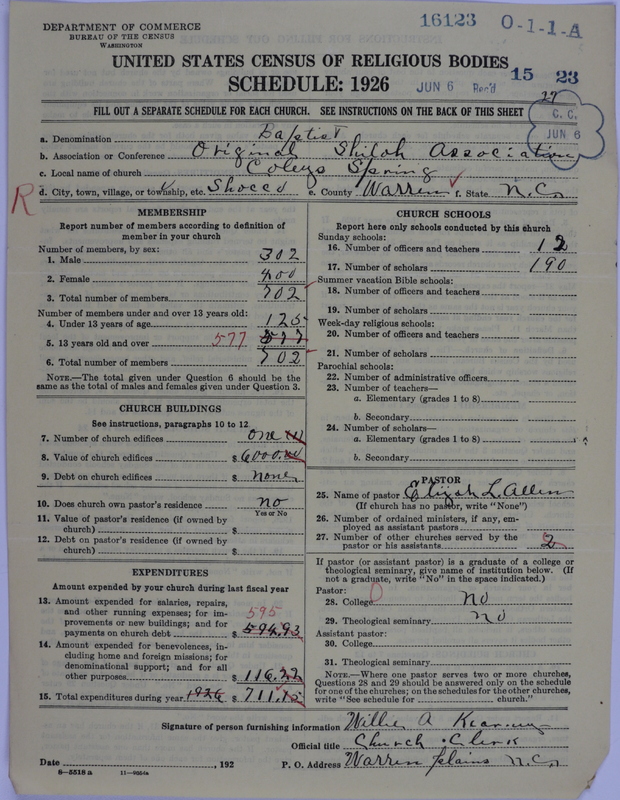 DEPARTMENT OF COMMERCE
BUREAU OF THE CENSUS
WASHINGTON
16123 O-1-1-A
UNITED STATES CENSUS OF RELIGIOUS BODIES
SCHEDULE: 1926
JUN 6 Rec'd 15 23
27
FILL OUT A SEPARATE SCHEDULE FOR EACH CHURCH. SEE INSTRUCTIONS ON THE BACK OF THIS SHEET
C. C.
JUN 6
a. Denomination Baptist
b. Association or Conference Original Shiloh Association
c. Local name of church Coleys Spring
R d. City, town, village, or township, etc. Shocco e. County Warren f. State N.C.
MEMBERSHIP
Report number of members according to definition of
member in your church
Number of members, by sex:
1. Male 302
2. Female 400
3. Total number of members 702
Number of members under and over 13 years old:
4. Under 13 years of age 125
5. 13 years old and over 577 577
6. Total number of members 702
NOTE.—The total given under Question 6 should be
the same as the total of males and females given under Question 3.
CHURCH BUILDINGS
See instructions, paragraphs 10 to 12
7. Number of church edifices one (1)
8. Value of church edifices $ 6000.00
9. Debt on church edifices $ none
10. Does church own pastor's residence? no
Yes or No
11. Value of pastor's residence (if owned by
church) $
12. Debt on pastor's residence (if owned by
church) $
EXPENDITURES
Amount expended by your church during last fiscal year
13. Amount expended for salaries, repairs,
and other running expenses; for im-
provements or new buildings; and for
payments on church debt $ 594.93
595
14. Amount expended for benevolences, in-
cluding home and foreign missions; for
denominational support; and for all
other purposes $ 116.22
15. Total expenditures during year 1926 $ 711.15
CHURCH SCHOOLS
Report here only schools conducted by this church
Sunday schools:
16. Number of officers and teachers 12
17. Number of scholars 190
Summer vacation Bible schools:
18. Number of officers and teachers
19. Number of scholars
Week-day religious schools:
20. Number of officers and teachers
21. Number of scholars
Parochial schools:
22. Number of administrative officers
23. Number of teachers—
a. Elementary (grades 1 to 8)
b. Secondary
24. Number of scholars—
a. Elementary (grades 1 to 8)
b. Secondary
PASTOR
25. Name of pastor Elijah L. Allen
(If church has no pastor, write "None")
26. Number of ordained ministers, if any, em-
ployed as assistant pastors
27. Number of other churches served by the
pastor or his assistants 2
If pastor (or assistant pastor) is a graduate of a college or
theological seminary, give name of institution below. (If
not a graduate, write "No" in the space indicated.)
Pastor:
28. College 0 No
29. Theological seminary No
Assistant pastor:
30. College
31. Theological seminary
NOTE.—Where one pastor serves two or more churches,
Questions 28 and 29 should be answered only on the schedule
for one of the churches; on the schedules for the other churches,
write "See schedule for church."
Signature of person furnishing information Willie A Kearney
Official title Church Clerk
Date , 192 P. O. Address Warren plains N.C.
8—5518 a 11—9554a